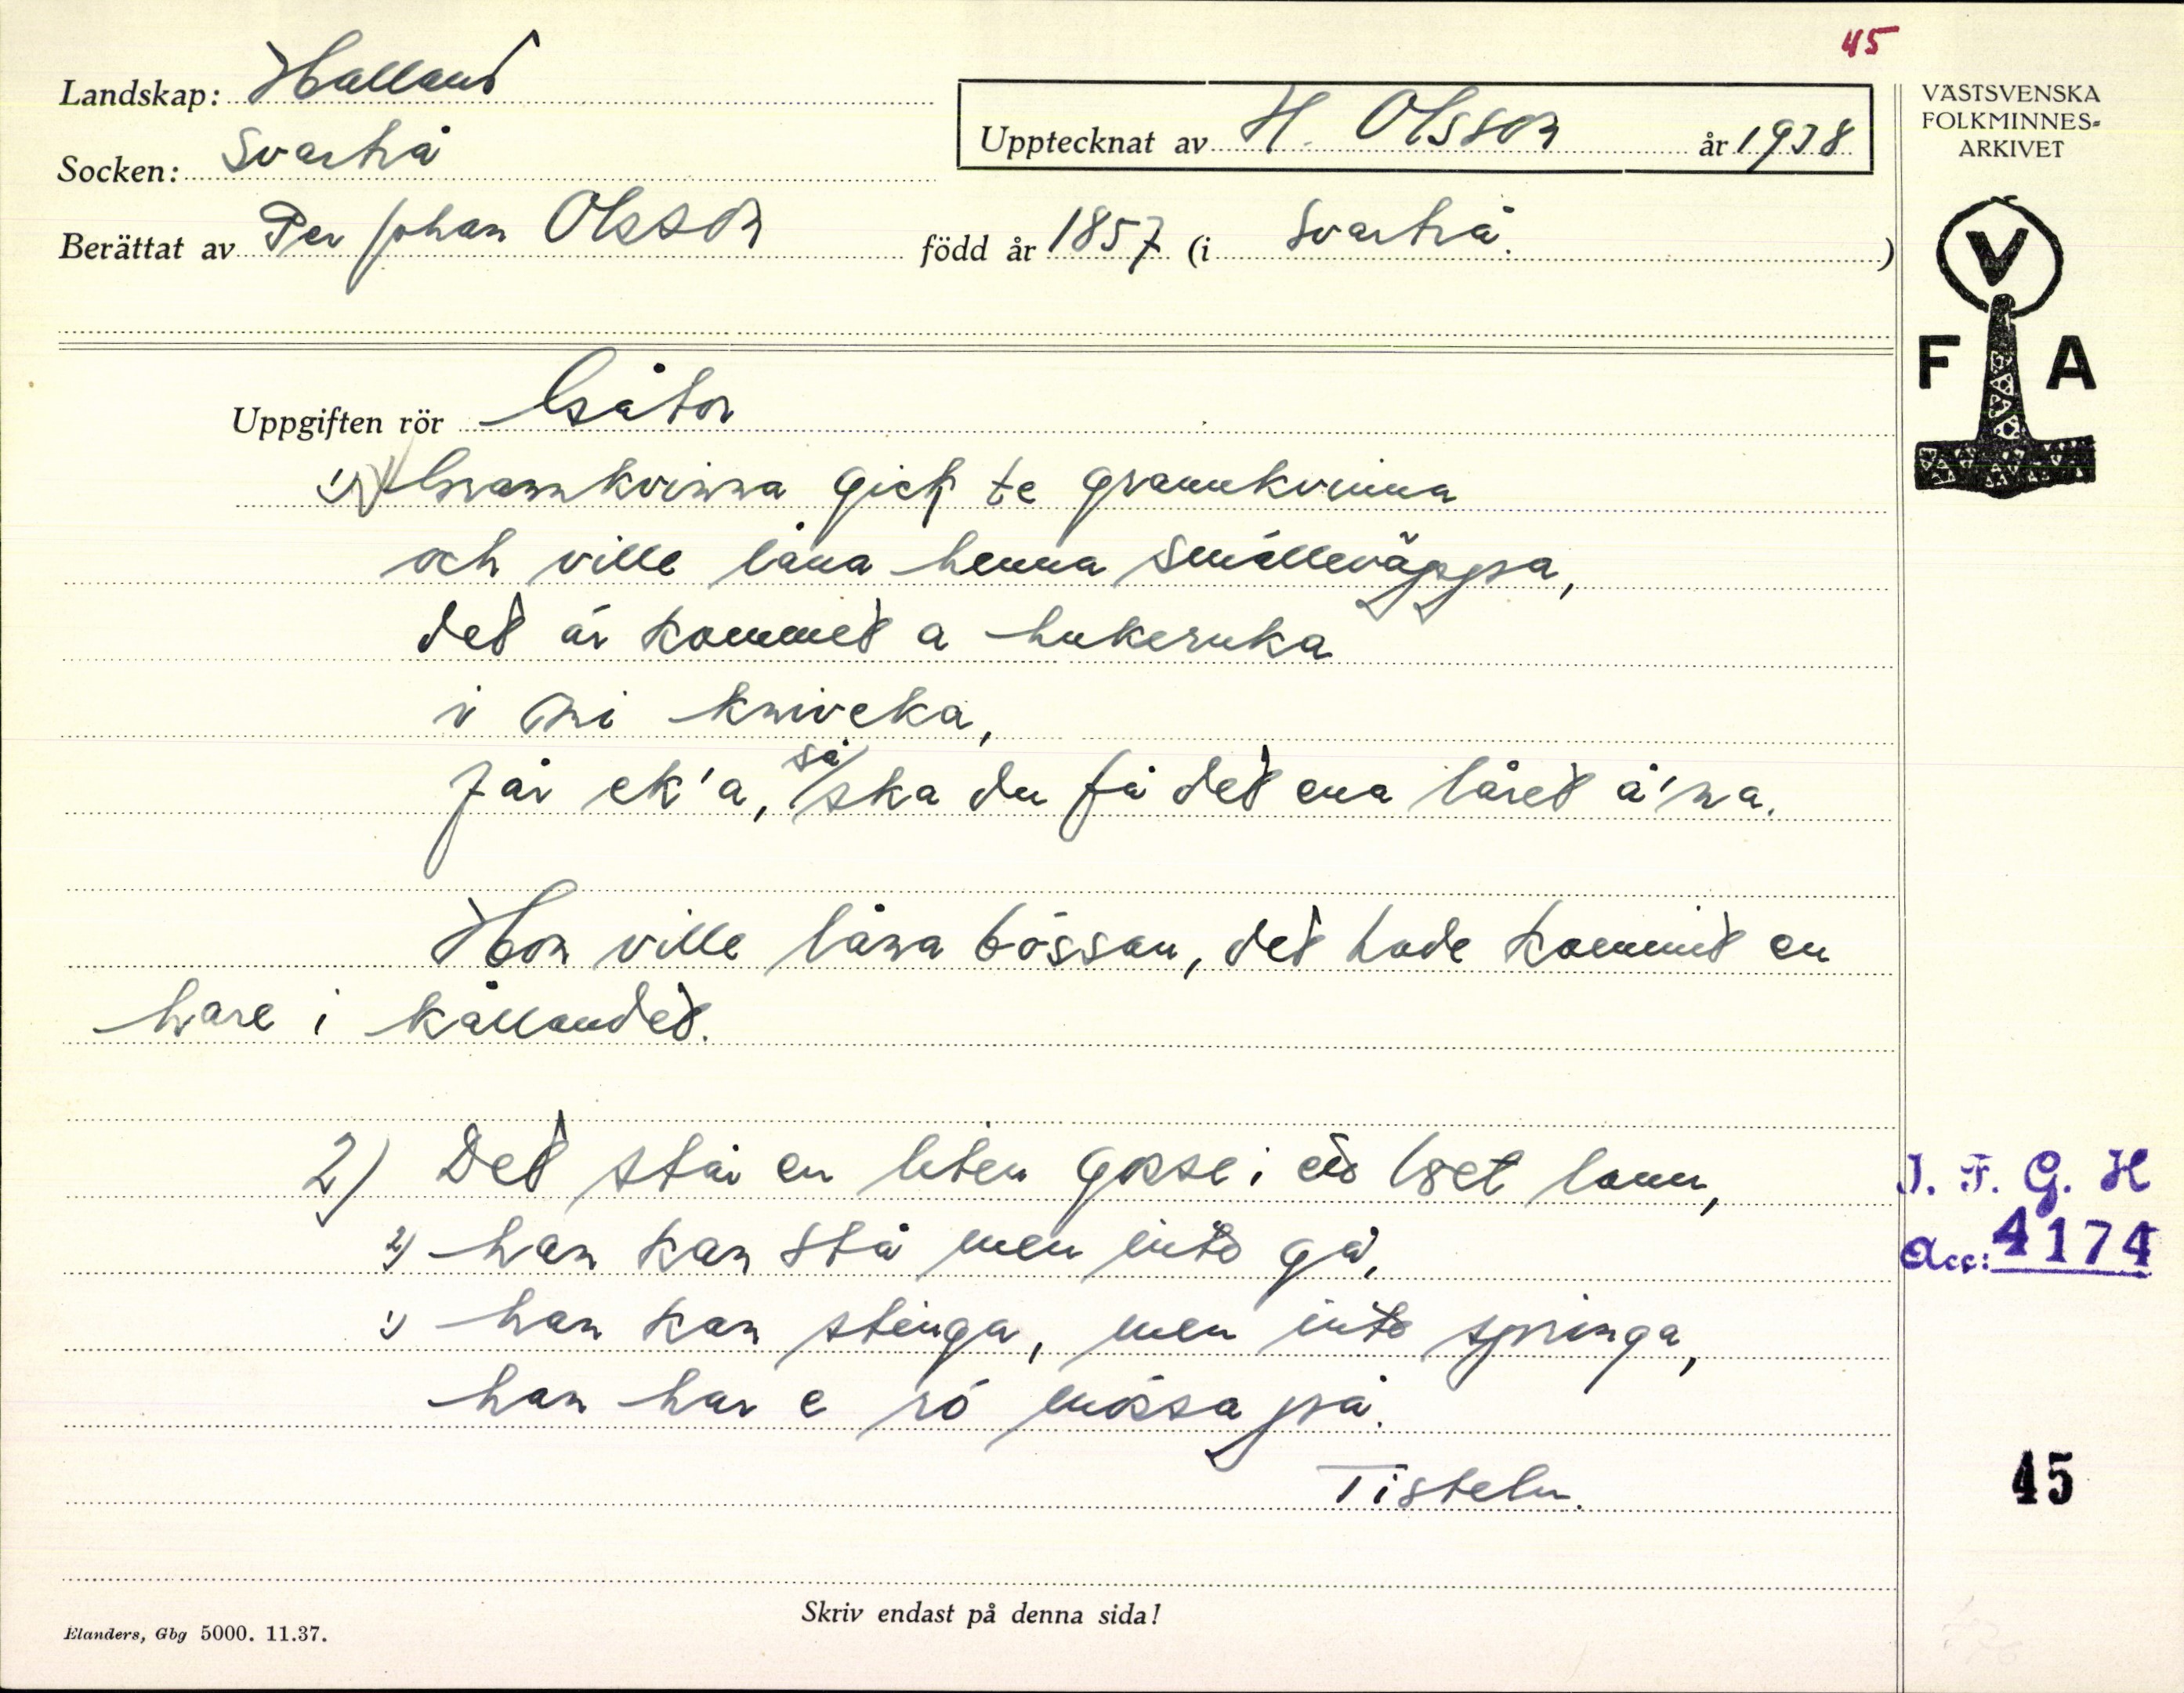 45
Landskap: Halland
Upptecknat av H. Olsson år 1938
VÄSTSVENSKA
FOLKMINNES-
ARKIVET
Socken: Svartrå
Berättat av Per Johan Olsson född år 1857 (i Svartrå.)
V
F A
Uppgiften rör Gåtor
1) Grannkvinna gick te grannkvinna
och ville låna henna smälleväppa,
det är kommet a hukeruka
i mi kniveka,
får ek'a, så ska du få det ena låret å'na.
Hon ville låna bössan, det hade kommit en
hare i kållandet.
2) Det står en liten gosse i et lann,
2) han kan stå men inte gå,
1) han kan stinga, men inte springa,
han har e rö mössa på.
Tisteln.
I. F. G. H
Acc: 4174
45
Skriv endast på denna sida!
Elanders, Gbg 5000. 11.37.